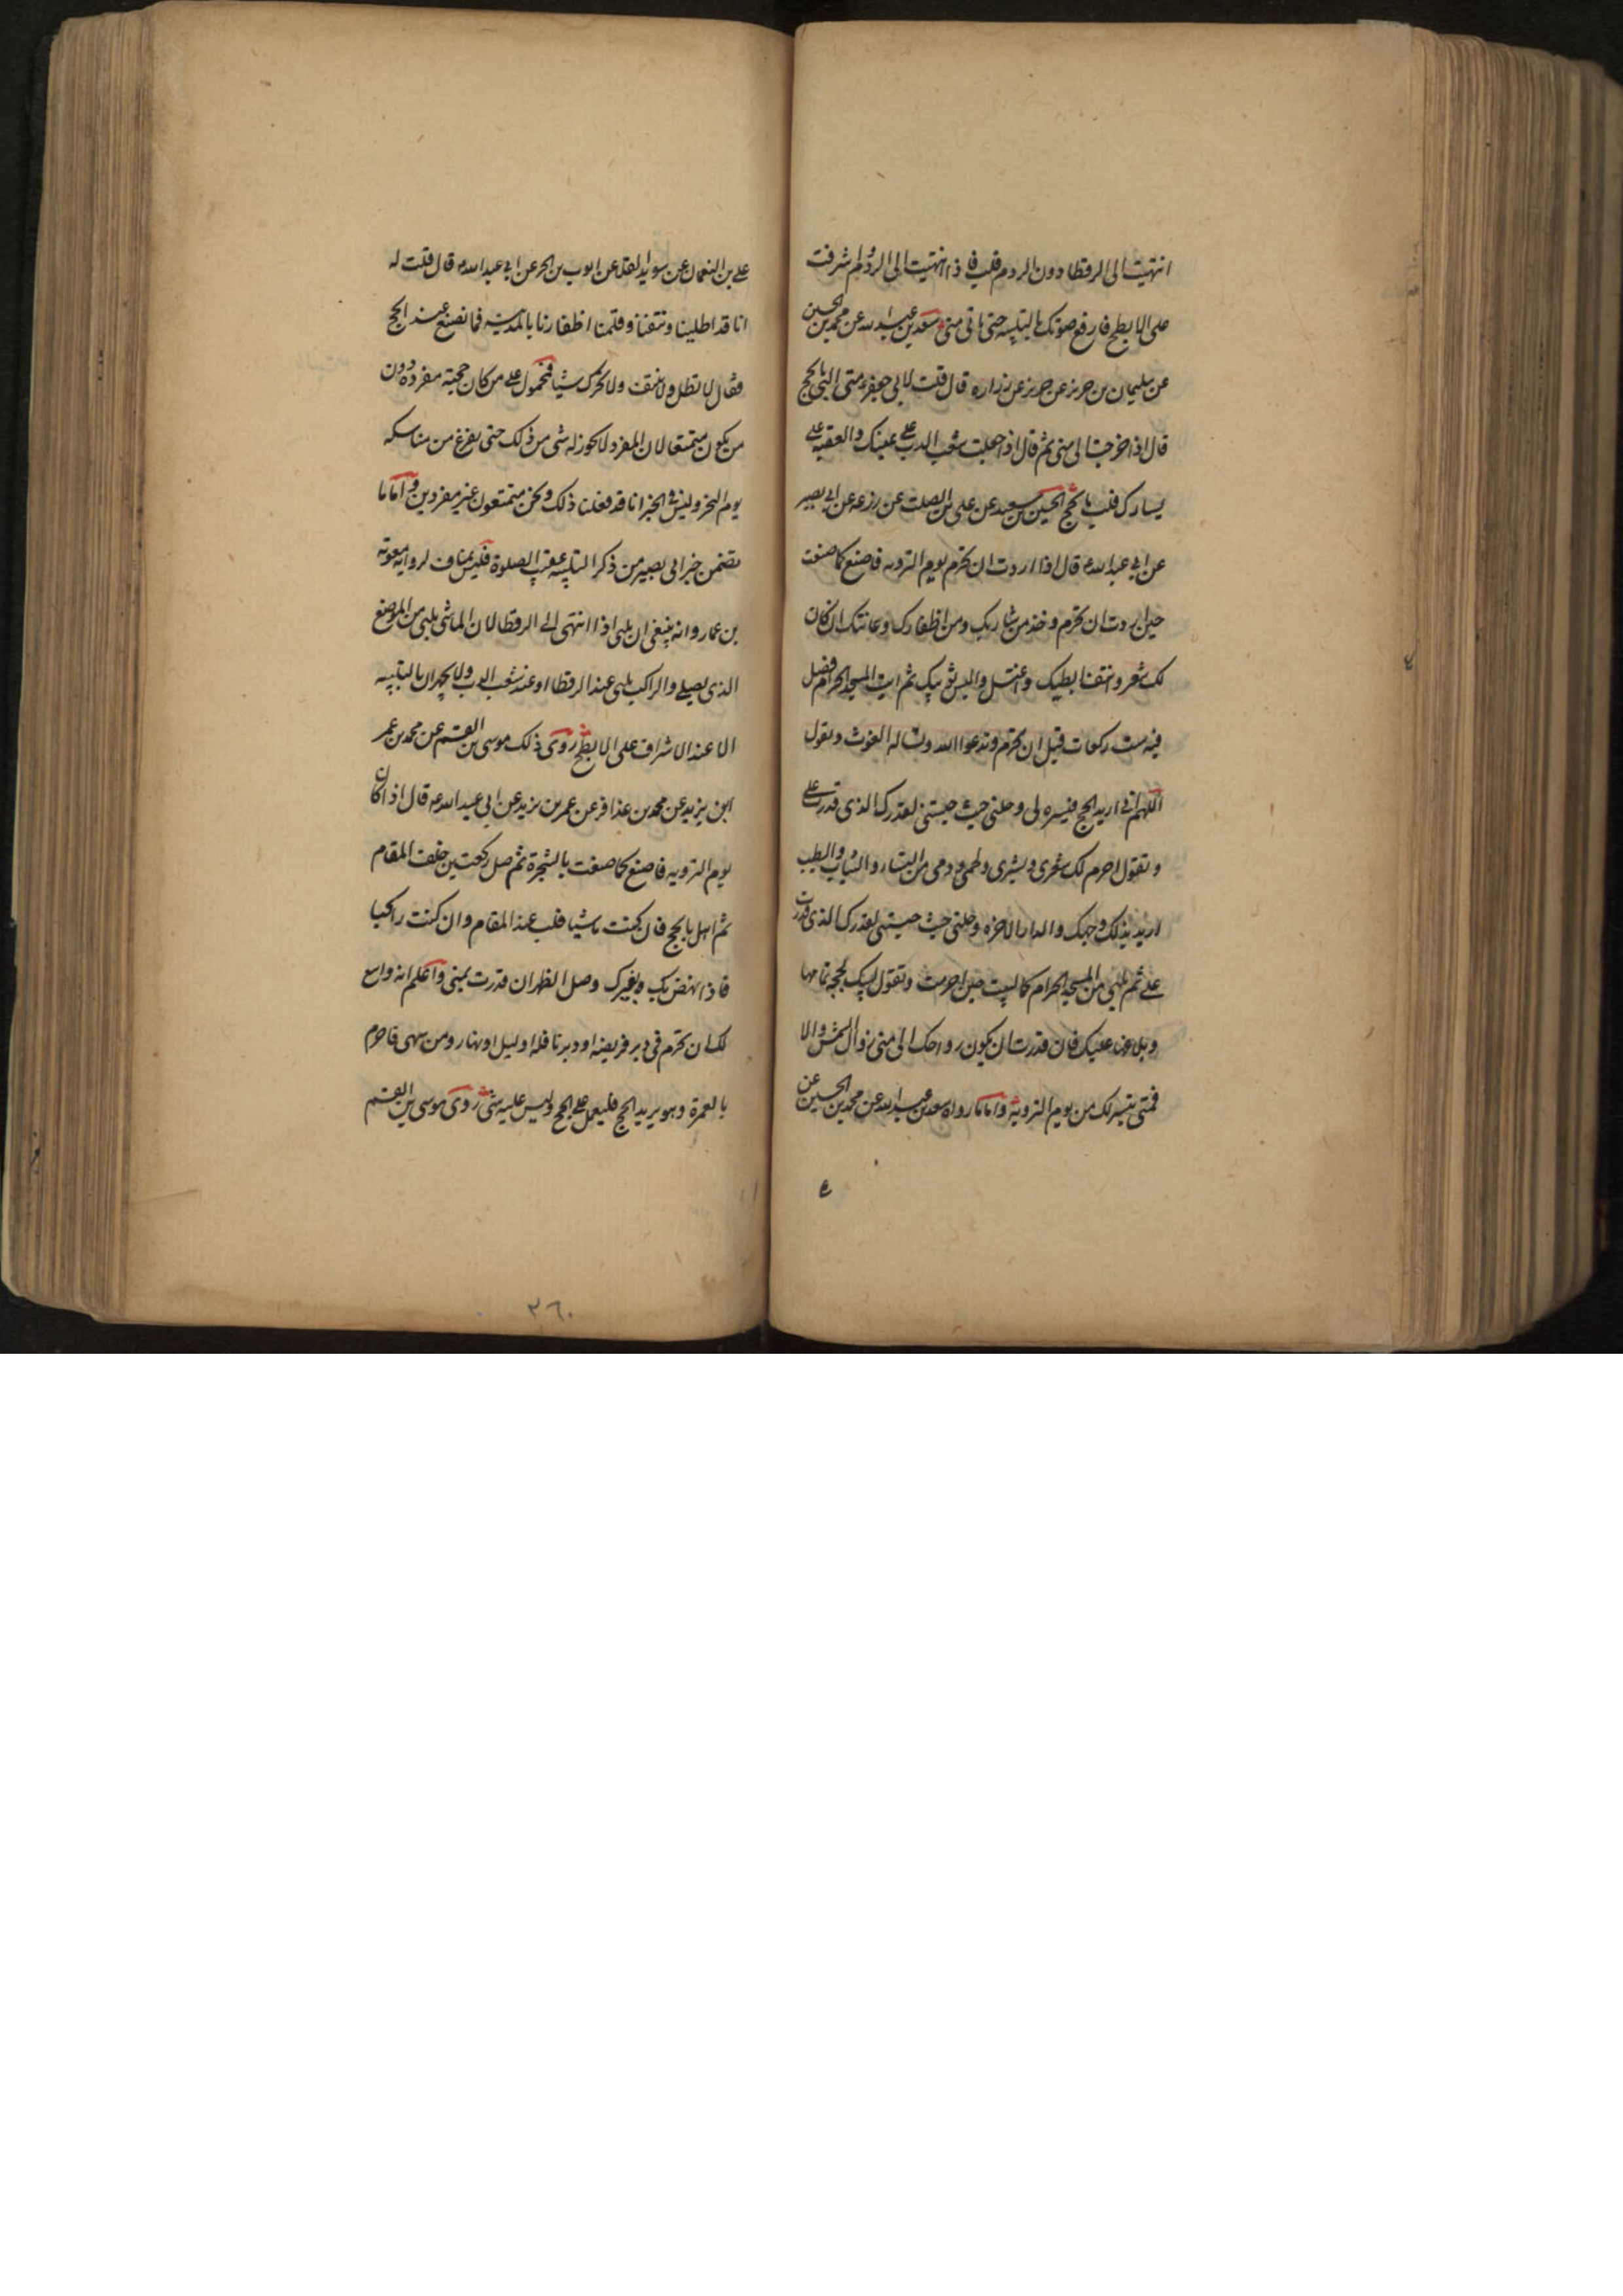 انتهيت الى الرقطا دون الردم فلب فاذا انتهيت الى الردم و اشرفت
على الابطح فارفع صوتك بالتلبيه حتى تاتى منى سعد بن عبد الله عن محمد بن الحسين
عن سليمان بن حريز عن حريز عن زراره قال قلت لابى جعفر ع متى البى بالحج
قال اذا خرجت الى منى ثم قال اذا جعلت شعب الدب على يمينك والعقبه على
يسارك فلب بالحج الحسين بن سعيد عن على بن الصلت عن زرعه عن ابى بصير
عن ابى عبد الله ع قال اذا اردت ان تحرم يوم الترويه فاصنع كما صنعت
حين اردت ان تحرم وخذ من شاربك ومن اظفارك وعانتك ان كان
لك شعر وانتف ابطيك واغتسل والبس ثوبيك ثم ايت المسجد الحرام فصل
فيه ست ركعات قبل ان تحرم وتدعوا الله وتساله العون وتقول
اللهم انى اريد الحج فيسره لى وحلنى حيث حبستنى لقدرك الذى قدرت على
وتقول احرم لك شعرى وبشرى ولحمى ودمى من النساء والثياب والطيب
اريد بذلك وجهك والدار الاخره وحلنى حيث حبستنى لقدرك الذى قدرت
على ثم تلبى من المسجد الحرام كما لبيت حين احرمت وتقول لبيك بحجه تمامها
وبلاغها عليك فان قدرت ان يكون رواحك الى منى زوال الشمس والا
فمتى تيسر لك من يوم الترويه واما ما رواه سعد بن عبد الله عن محمد بن الحسين عن
على بن النعمان عن سويد القلا عن ايوب بن الحر عن ابى عبد الله ع قال قلت له
انا قد اطلينا ونتفنا وقلمنا اظفارنا بالمدينه فما نصنع عند الحج
فقال لا تطل ولا تنتف ولا تحرك شيا فمحمول على من كان حجته مفرده دون
من يكون متمتعا لان المفرد لا يجوز له شى من ذلك حتى يفرغ من مناسكه
يوم النحر وليس فى الخبر انا قد فعلنا ذلك ونحن متمتعون غير مفردين واما ما
تضمن خبر ابى بصير من ذكر التلبيه عقيب الصلوة فليس بمناف لروايه معويه
بن عمار وانه ينبغى ان يلبى اذا انتهى الى الرقطا لان الماشى يلبى من الموضع
الذى يصلى والراكب يلبى عند الرقطا او عند شعب الدب ولا يجهران بالتلبيه
الا عند الاشراف على الابطح روى ذلك موسى بن القسم عن محمد بن عمر
ابن يزيد عن محمد بن عذافر عن عمر بن يزيد عن ابى عبد الله ع قال اذا كان
يوم الترويه فاصنع كما صنعت بالشجرة ثم صل ركعتين خلف المقام
ثم اهل بالحج فان كنت ماشيا فلب عند المقام وان كنت راكبا
فاذا نهض بك بعيرك وصل الظهر ان قدرت بمنى واعلم انه واسع
لك ان تحرم فى دبر فريضه او دبر نافله او ليل او نهار ومن سهى فاحرم
بالعمرة وهو يريد الحج فليعمل على الحج وليس عليه شى روى موسى بن القسم
٣٦٠